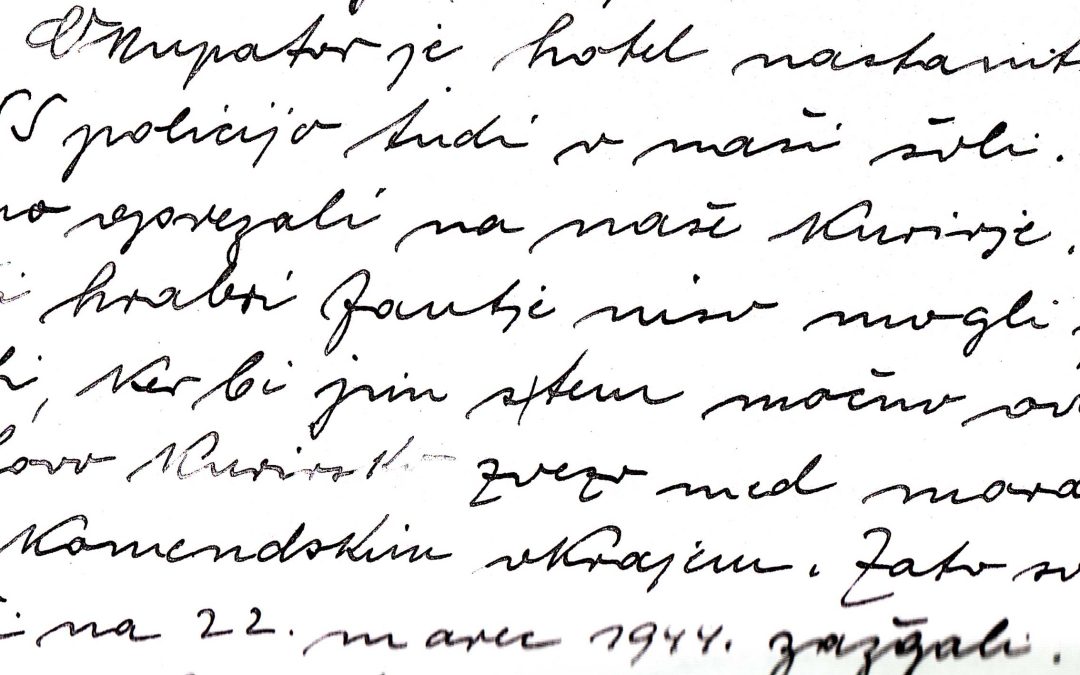 Okupator je hotel nastanit
SS policijo tudi v naši šoli.
no oprezali na naše kurirje.
i hrabri fantje niso mogli
ti, ker bi jim s tem močno ov
hovo kurirsko zvezo med mora
Komendskim okrajem. Zato so
či na 22. marec 1944. zažgali.